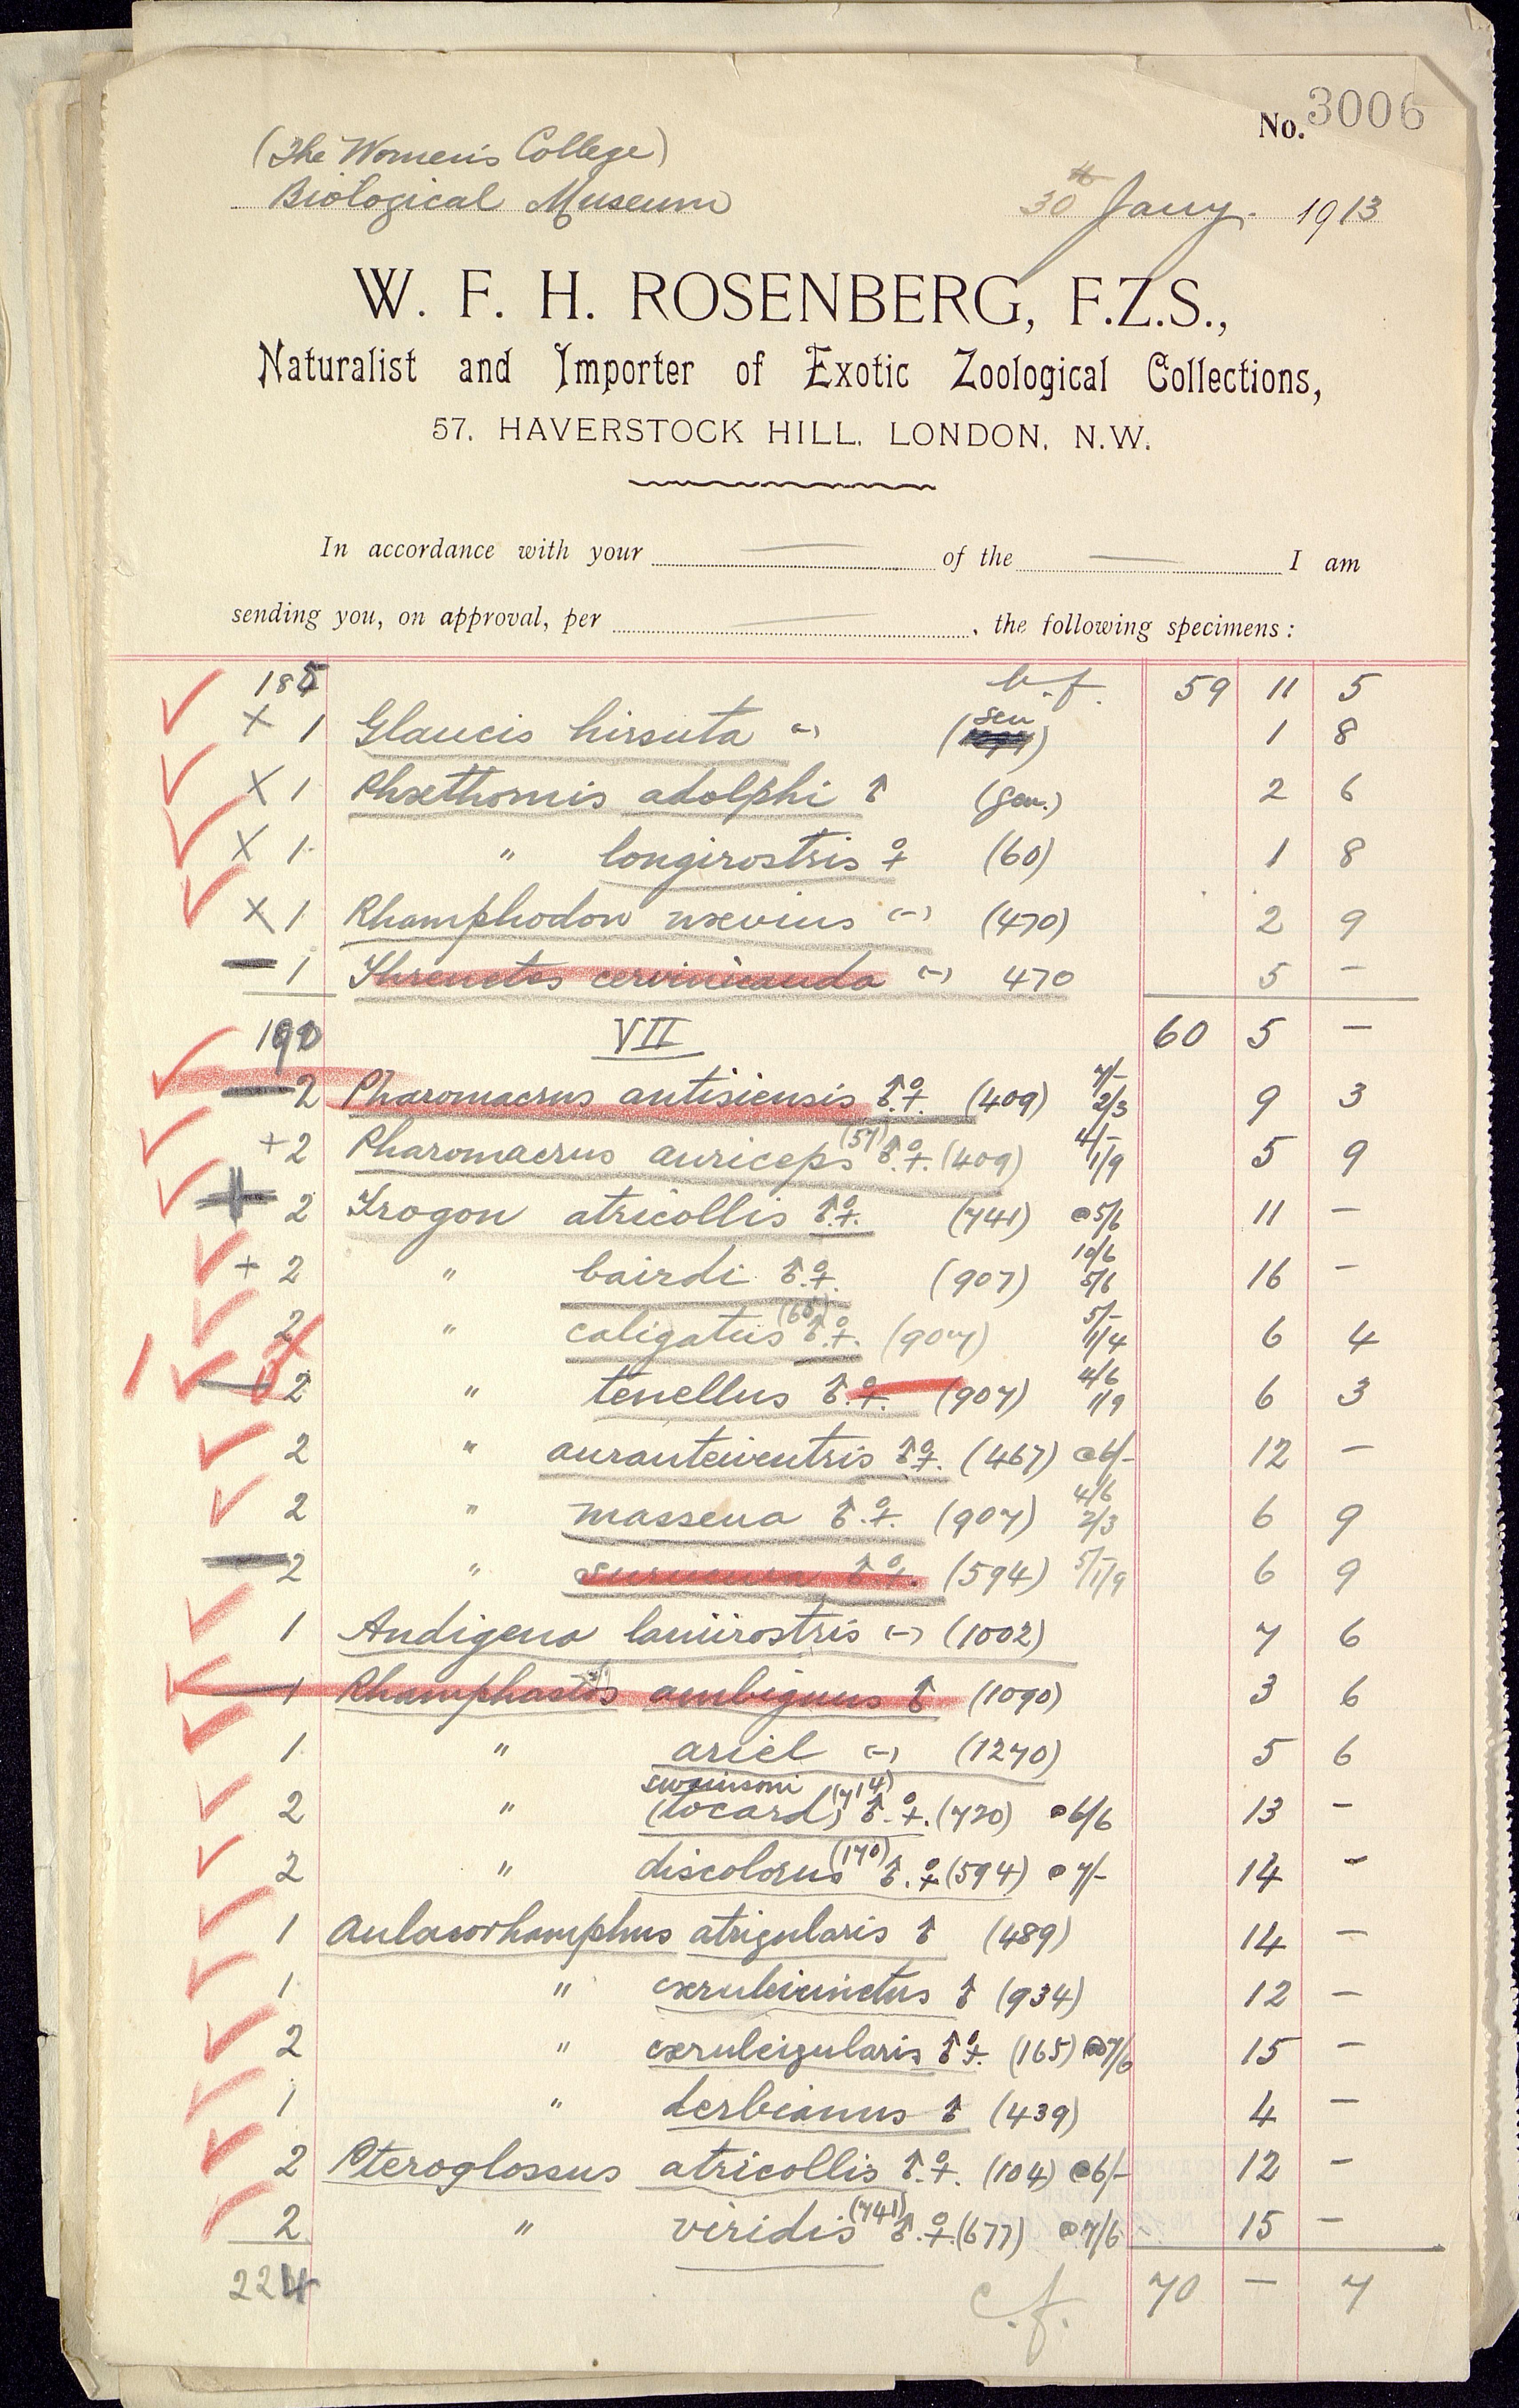 No. 3006
(The Women's College)
Biological Museum 30th Jany. 1913
W. F. H. ROSENBERG, F.Z.S.,
Naturalist and Importer of Exotic Zoological Collections,
57, HAVERSTOCK HILL, LONDON, N.W.
In accordance with your — of the — I am
sending you, on approval, per —, the following specimens:
185 b.f. 59 11 5
+ 1 Glaucis hirsuta (-) (Gen) 1 8
X 1 Phæthornis adolphi ♂ (Gen.) 2 6
X 1 " longirostris ♀ (60) 1 8
X 1 Rhamphodon nævius (-) (470) 2 9
— 1 Threnetes cervinicauda (-) 470 5 —
190 VII 60 5 —
— 2 Pharomacrus antisiensis ♂.♀. (409) 7/- 2/3 9 3
+ 2 Pharomacrus auriceps (57) ♂.♀. (409) 4/- 1/9 5 9
+ 2 Trogon atricollis ♂.♀. (741) @ 5/6 11 —
+ 2 " bairdi ♂.♀. (907) 10/6 5/6 16 —
2 " caligatus ♂.♀. (907) 5/- 1/4 6 4
1 — 2 " tenellus ♂.♀. (907) 4/6 1/9 6 3
2 " auranteiventris ♂.♀. (467) @ 6/- 12 —
2 " massena ♂.♀. (907) 4/6 2/3 6 9
— 2 " surucura ♂.♀. (594) 5/- 1/9 6 9
1 Andigena laminirostris (-) (1002) 7 6
— 1 Rhamphastos ambiguus ♂ (1090) 3 6
1 " ariel (-) (1270) 5 6
swainsoni
2 " (tocard) (714) ♂.♀. (720) @ 6/6 13 —
2 " discolorus (170) ♂.♀ (594) @ 7/- 14 -
1 Aulacorhamphus atrigularis ♂ (489) 14 —
1 " cæruleicinctus ♂ (934) 12 —
2 " cæruleigularis ♂♀. (165) @ 7/6 15 —
1 " derbianus ♂ (439) 4 —
2 Pteroglossus atricollis ♂.♀. (104) @ 6/- 12 —
2 " viridis (741) ♂.♀. (677) @ 7/6 15 —
224 c.f. 70 — 7